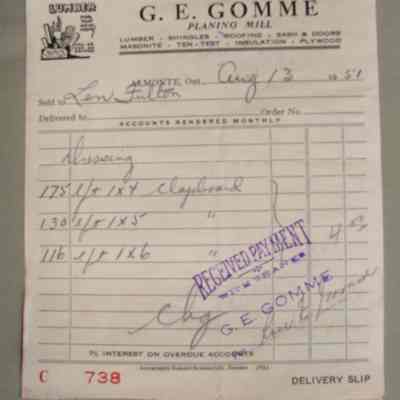 LUMBER
G. E. GOMME
PLANING MILL
LUMBER - SHINGLES - ROOFING - SASH & DOORS
MASONITE - TEN-TEST - INSULATION - PLYWOOD
ALMONTE, Ont. Aug 13 1951
Sold to Len Fulton
Delivered to Order No.
ACCOUNTS RENDERED MONTHLY
Dressing
175 l/ft 1x4 Clapboard
130 l/ft 1x5 "
116 l/ft 1x6 "
RECEIVED PAYMENT
WITH THANKS
G. E. GOMME
Chg
7% INTEREST ON OVERDUE ACCOUNTS
C 738
DELIVERY SLIP